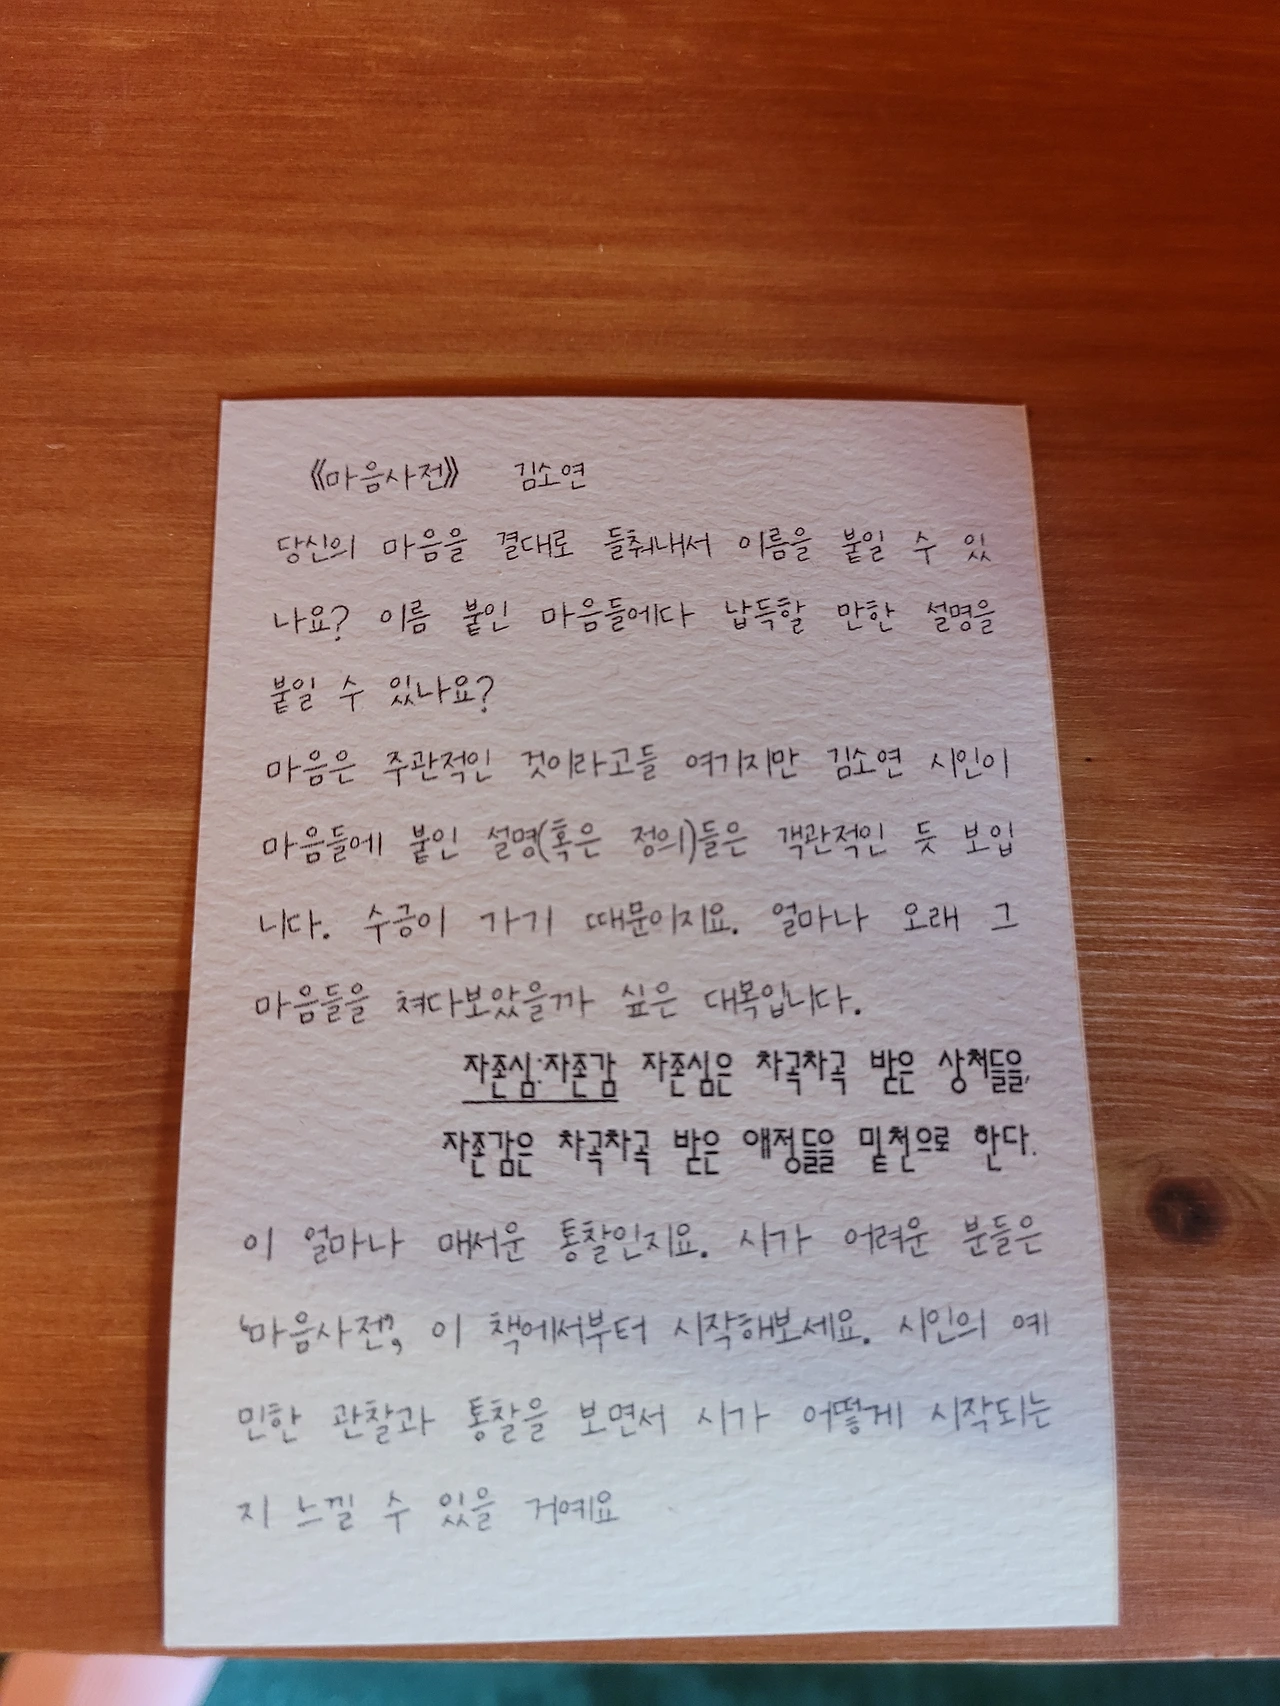 《마음사전》 김소연
당신의 마음을 결대로 들춰내서 이름을 붙일 수 있
나요? 이름 붙인 마음들에다 납득할 만한 설명을
붙일 수 있나요?
마음은 주관적인 것이라고들 얘기지만 김소연 시인이
마음들에 붙인 설명(혹은 정의)들은 객관적인 듯 보입
니다. 수긍이 가기 때문이지요. 얼마나 오래 그
마음들을 쳐다보았을까 싶은 대목입니다.
자존심:자존감 자존심은 차곡차곡 받은 상처들을,
자존감은 차곡차곡 받은 애정들을 밑천으로 한다.
이 얼마나 매서운 통찰인지요. 시가 어려운 분들은
"마음사전", 이 책에서부터 시작해보세요. 시인의 예
민한 관찰과 통찰을 보면서 시가 어떻게 시작되는
지 느낄 수 있을 거예요